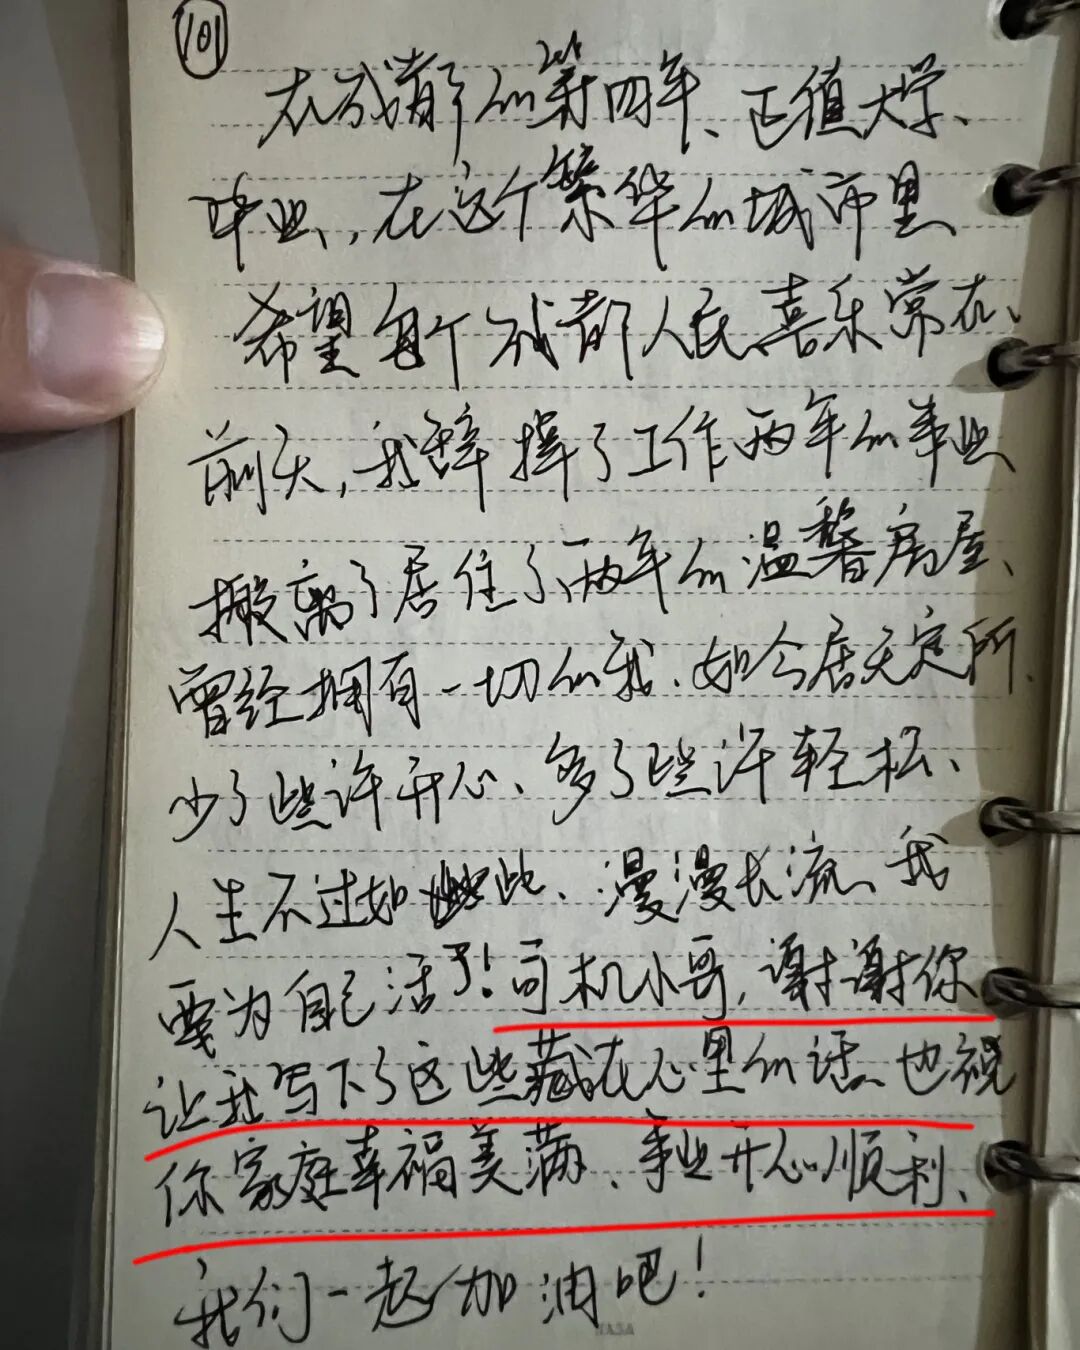 101
在成都的第四年、正值大学、
毕业、,在这个繁华的城市里
希望每个成都人民喜乐常在、
前天,我辞掉了工作两年的事业
搬离了居住了两年的温馨房屋、
曾经拥有一切的我、如今居无定所、
少了些许开心、多了些许轻松、
人生不过如此、漫漫长流、我
要为自己活了!司机小哥,谢谢你
让我写下了这些藏在心里的话、也祝
你家庭幸福美满、事业开心顺利、
我们一起加油吧!